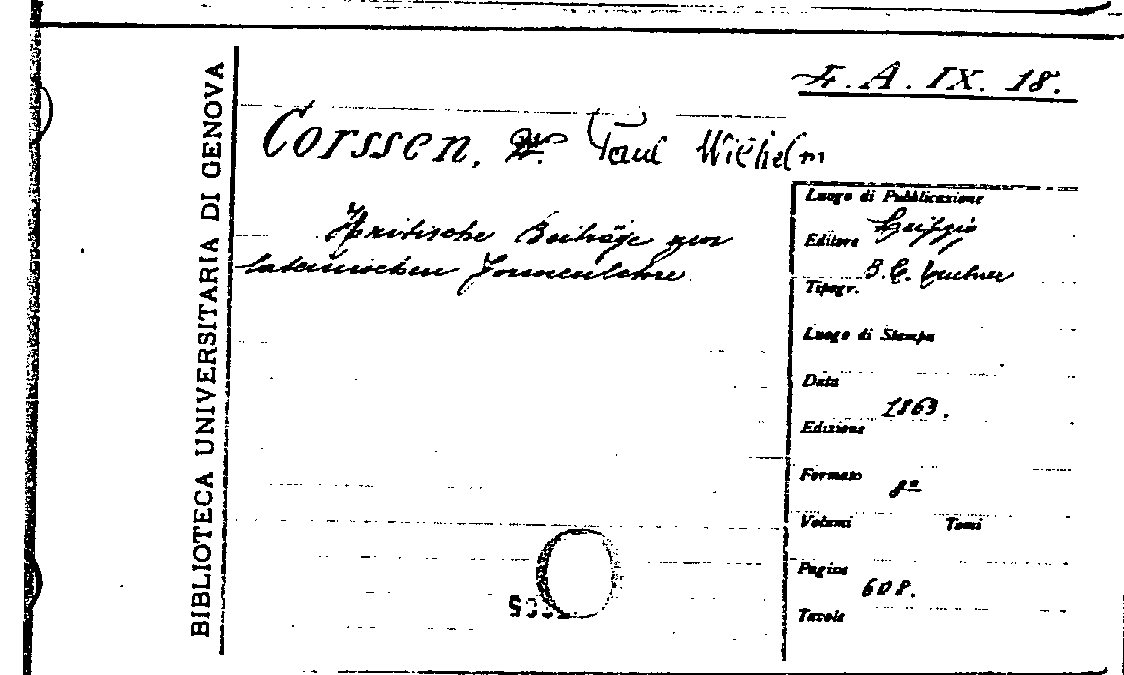 BIBLIOTECA UNIVERSITARIA DI GENOVA
F. A. IX. 18.
Corssen, W. Paul Wilhelm
Kritische Beiträge zur
lateinischen Formenlehre
Luogo di Pubblicazione
Leipzig
Editore
B. G. Teubner
Tipogr.
Luogo di Stampa
Data
1863.
Edizione
Formato
8º
Volumi Tomi
Pagine
608.
Tavole